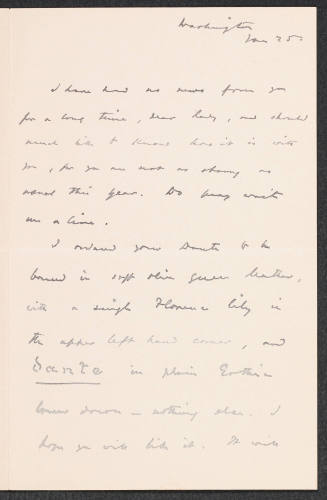 Washington
Jan 25.
I have had no news from you
for a long time, dear lady, and should
much like to know how it is with
you, for you are not as strong as
usual this year. Do pray write
me a line.
I ordered your Dante to be
bound in soft olive green leather,
with a single Florence lily in
the upper left hand corner, and
Dante in plain Gothic
lower down – nothing else. I
hope you will like it. It will